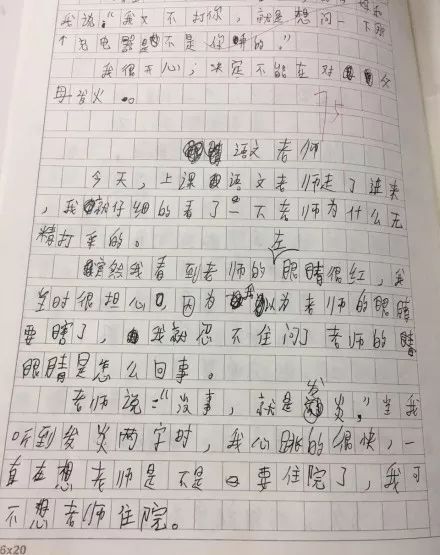 我说："我又不打你，就是想问一下那
个充电器是不是你弄的。"
我很开心，决定不能在对父
母发火。
75
语文老师
今天，上课语文老师走了进来
，我就仔细的看了一下老师为什么无
精打采的。
突然我看到老师的左眼睛很红，我
当时很担心，因为我以为老师的眼睛
要瞎了，我就忍不住问了老师的
眼睛是怎么回事。
老师说："没事，就是发炎。"当我
听到发炎两字时，我心跳的很快，一
直在想老师是不是要住院了，我可
不想老师住院。
6x20